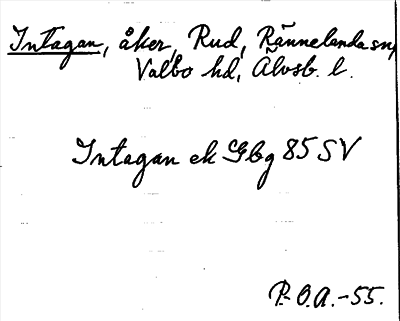 Intagan, åker, Rud, Rännelanda sn,
Valbo hd, Älvsb. l.
Intagan ek Gbg 85 SV
P.O.A.-55.